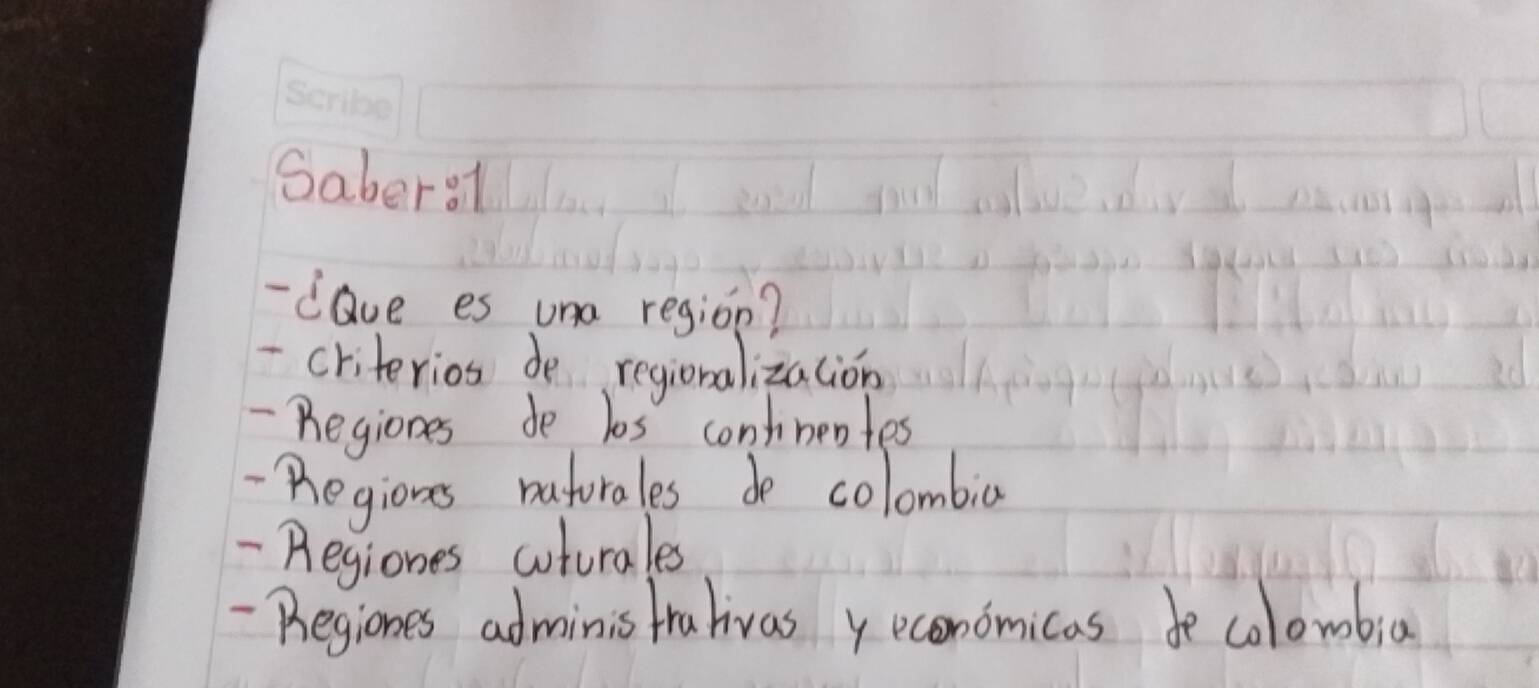 Scribe
Saber:1
- ¿Que es una región?
- criterios de regionalización
- Regiones de los continentes
- Regiones naturales de colombia
- Regiones cuturales
- Regiones administrativas y económicas de colombia